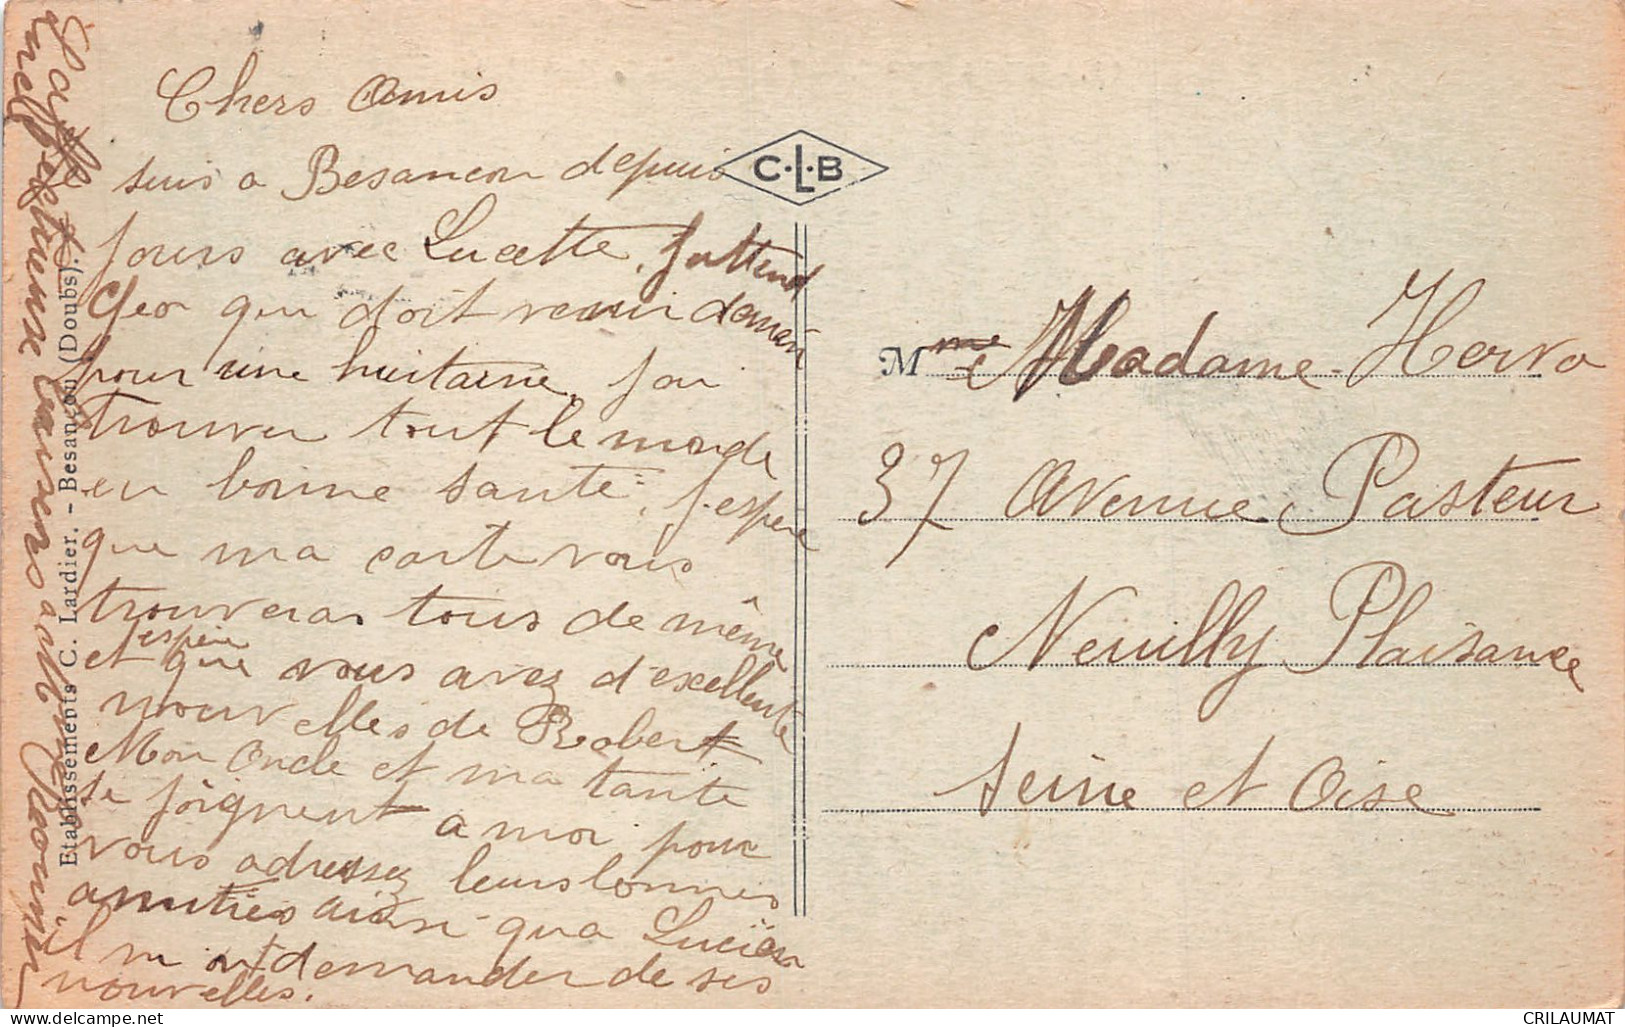 Chers Amis
suis a Besancon depuis
jours avec Lucette, j'attend
Geo qui doit venir demain
pour une huitaine, j'ai
trouver tout le monde
en bonne santé, j'espere
que ma carte vous
trouveras tous de même
et espere que vous avez d'excellente
nouvelles de Robert
Mon Oncle et ma tante
se joignent a moi pour
vous adressez leurs bonnes
amitiés ainsi qu'a Lucien
il m'ont demander de ses
nouvelles.
affectueuse baisers a
Etablissements C. Lardier. - Besançon (Doubs).
C.L.B
Mme Madame Herva
37 Avenue Pasteur
Neuilly Plaisance
Seine et Oise
CRILAUMAT